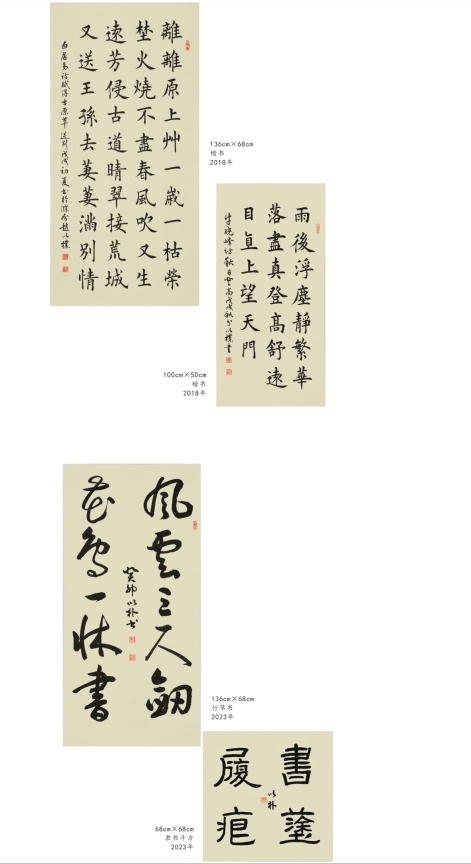 離離原上艸一歲一枯榮
埜火燒不盡春風吹又生
遠芳侵古道晴翠接荒城
又送王孫去萋萋滿別情
白居易詩賦得古原草送別戊戌初夏書於
以樸
136cm×68cm
楷书
2018年
雨後浮塵靜繁華
落盡真登高舒遠
目直上望天門
秋日登高戊戌秋分以樸書
100cm×50cm
楷书
2018年
風雲三尺劒
花鳥一牀書
癸卯以朴书
136cm×68cm
行草书
2023年
書
履痕
以朴
68cm×68cm
隶书斗方
2023年